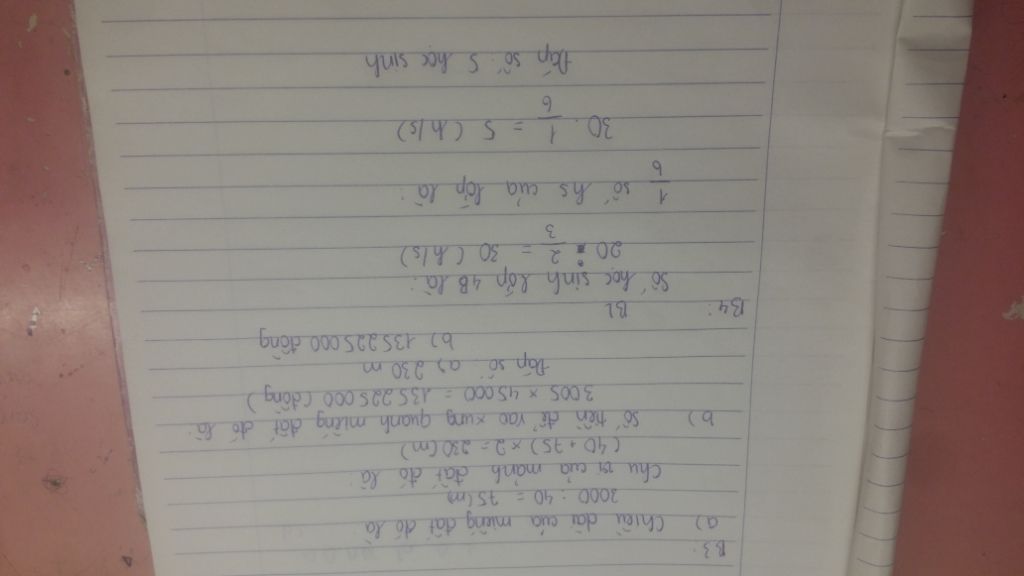 B3:
a) Chiều dài của miếng đất đó là
3000 : 40 = 75 (m)
Chu vi của mảnh đất đó là:
(40 + 75) × 2 = 230 (m)
b) Số tiền để rao xung quanh miếng đất đó là:
3005 × 45000 = 135225000 (đồng)
Đáp số: a) 230 m
b) 135225000 đồng
B4: BL
Số học sinh lớp 4B là:
20 : 2/3 = 30 (h/s)
1/6 số hs của lớp là:
30 . 1/6 = 5 (h/s)
Đáp số: 5 học sinh